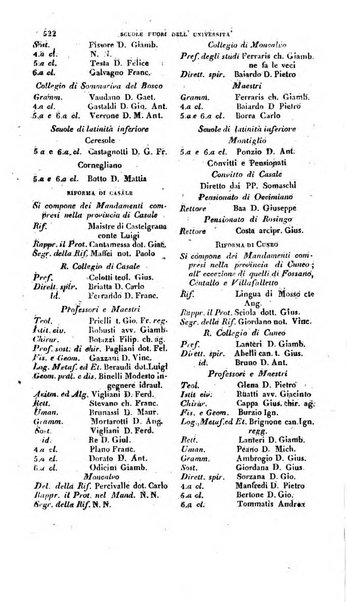 522 SCUOLE FUORI DELL' UNIVERSITÀ
Sost. Fissore D. Giamb.
4.a cl. N. N.
5.a cl. Testa D. Felice
6.a cl. Galvagno Franc.
Collegio di Sommariva del Bosco
Gramm. Vaudano D. Gaet.
4.a cl. Gastaldi D. Gio. Ant.
5.a e 6.a cl. Verrone D. M. Ant.
Scuole di latinità inferiore
Ceresole
5.a e 6.a cl. Castagnotti D. G. Fr.
Cornegliano
5.a e 6.a cl. Botto D. Mattia
RIFORMA DI CASALE
Si compone dei Mandamenti compresi
nella provincia di Casale
Rif. Maistre di Castelgrana
conte Luigi
Rappr. il Prot. Cantamessa dot. Gio.
Segr. della Rif. Maffei not. Paolo
R. Collegio di Casale
Pref. Celotti teol. Gius.
Dirett. spir. Briatta D. Carlo
id. Ferrando D. Franc.
Professori e Maestri
Teol. Prielli t. Gio. Fr. reg.
Istit. civ. Robusti avv. Giamb.
Chirur. Botazzi Filip. ch. ag.
Pref. di sost. di Fil. Guaschino D. G.
Fis. e Geom. Gazzani D. Vinc.
Log. Metaf. ed Et. Beraudi dot. Luigi
Geom. prat. e dis. Binelli Modesto ingegnere
idraul.
Aritm. ed Alg. Vigliani D. Ferd.
Rett. Stevano ch. Franc.
Uman. Brunassi D. Maur.
Gramm. Mortarotti D. Ang.
Sost. Vigliani D. Ferd.
id. Re D. Giul.
4.a cl. Plano D. Franc.
5.a cl. Dorato D. Ant.
6.a cl. Odicini Giamb.
Moncalvo
Del. della Rif. Percivalle dot. Carlo
Rappr. il Prot. nel Mand. N. N.
Segr. della Rif. N. N.
Collegio di Moncalvo
Pref. degli studi Ferraris ch. Giamb.
ne fa le veci
Dirett. spir. Baiardo D. Pietro
Maestri
Gramm. Ferraris ch. Giamb.
4.a cl. Baiardo D. Pietro
5.a e 6.a cl. Borra Carlo
Scuole di latinità inferiore
Montiglio
5.a e 6.a cl. Ponzio D. Ant.
Convitti e Pensionati
Convitto di Casale
Diretto dai PP. Somaschi
Pensionato di Occimiano
Rettore Baa D. Giuseppe
Pensionato di Rosingo
Rettore Costa arcipr. Gius.
RIFORMA DI CUNEO
Si compone dei Mandamenti compresi
nella provincia di Cuneo;
all' eccezione di quelli di Fossano,
Centallo e Villafalletto
Rif. Lingua di Mosso cte
Ang.
Rappr. il Prot. Sciola dott. Gius.
Segr. della Rif. Giordano not. Vinc.
R. Collegio di Cuneo
Pref. Lantèri D. Giamb.
Dirett. spir. Abelli can. t. Gius.
id. Bruno D. Ant.
Professori e Maestri
Teol. Glena D. Pietro
Istit. civ. Ruatti avv. Giacinto
Chirur. Cappa Gius. chir. ag.
Fis. e Geom. Burzio Ign.
Log., Metaf. ed Et. Brignone can. Ign.
regg.
Rett. Lanteri D. Giamb.
Uman. Peano D. Mich.
Gramm. Ambrogio D. Gius.
Sost. Giordana D. Gius.
Dirett. spir. Sorzana D. Gio.
4.a cl. Manfredi D. Pietro
5.a cl. Bertone D. Gio.
6.a cl. Tommatis Andrea